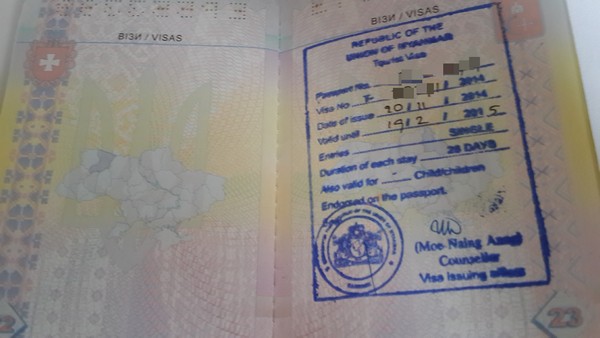 ВІЗИ / VISAS
ВІЗИ / VISAS
REPUBLIC OF THE
UNION OF MYANMAR
Tourist Visa
Passport No.
Visa No T- 11/ 2014
Date of issue 20/11/ 2014
Valid until 19/2/ 2015
Entries SINGLE
Duration of each stay 28 DAYS
Also valid for - Child/children
Endorsed on the passport.
(Moe Naing Aung)
Counsellor
Visa issuing officer
23